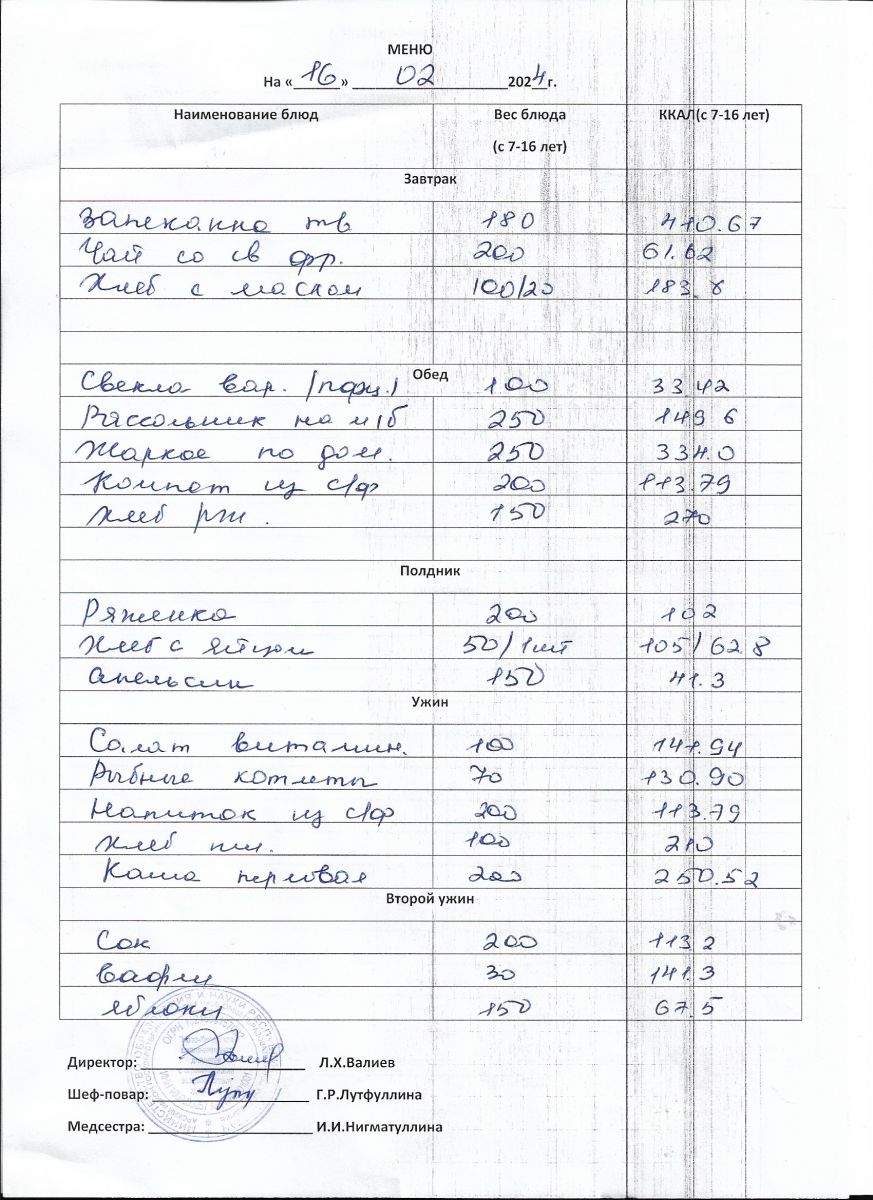 МЕНЮ
На «16» 02 2024г.
Наименование блюд Вес блюда (с 7-16 лет) ККАЛ(с 7-16 лет)
Завтрак
Запеканка тв 180 410.67
Чай со св фр. 200 61.62
Хлеб с маслом 100/20 183.8
Обед
Свекла вар. /порц./ 100 33.42
Рассольник на м/б 250 149 6
Жаркое по дом. 250 334.0
Компот из с/ф 200 113.79
Хлеб рж. 150 270
Полдник
Ряженка 200 102
Хлеб с яйцом 50/1шт 105/62.8
Апельсин 150 41.3
Ужин
Салат витамин. 100 141.94
Рыбные котлеты 70 130.90
Напиток из с/ф 200 113.79
Хлеб пш. 100 210
Каша перловая 200 250.52
Второй ужин
Сок 200 113 2
Вафли 30 141.3
Яблоки 150 67.5
Директор: Л.Х.Валиев
Шеф-повар: Г.Р.Лутфуллина
Медсестра: И.И.Нигматуллина